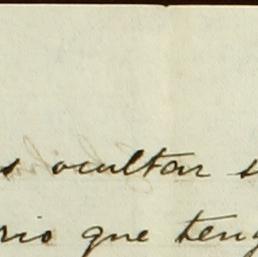 s ocultar s
rio que teng